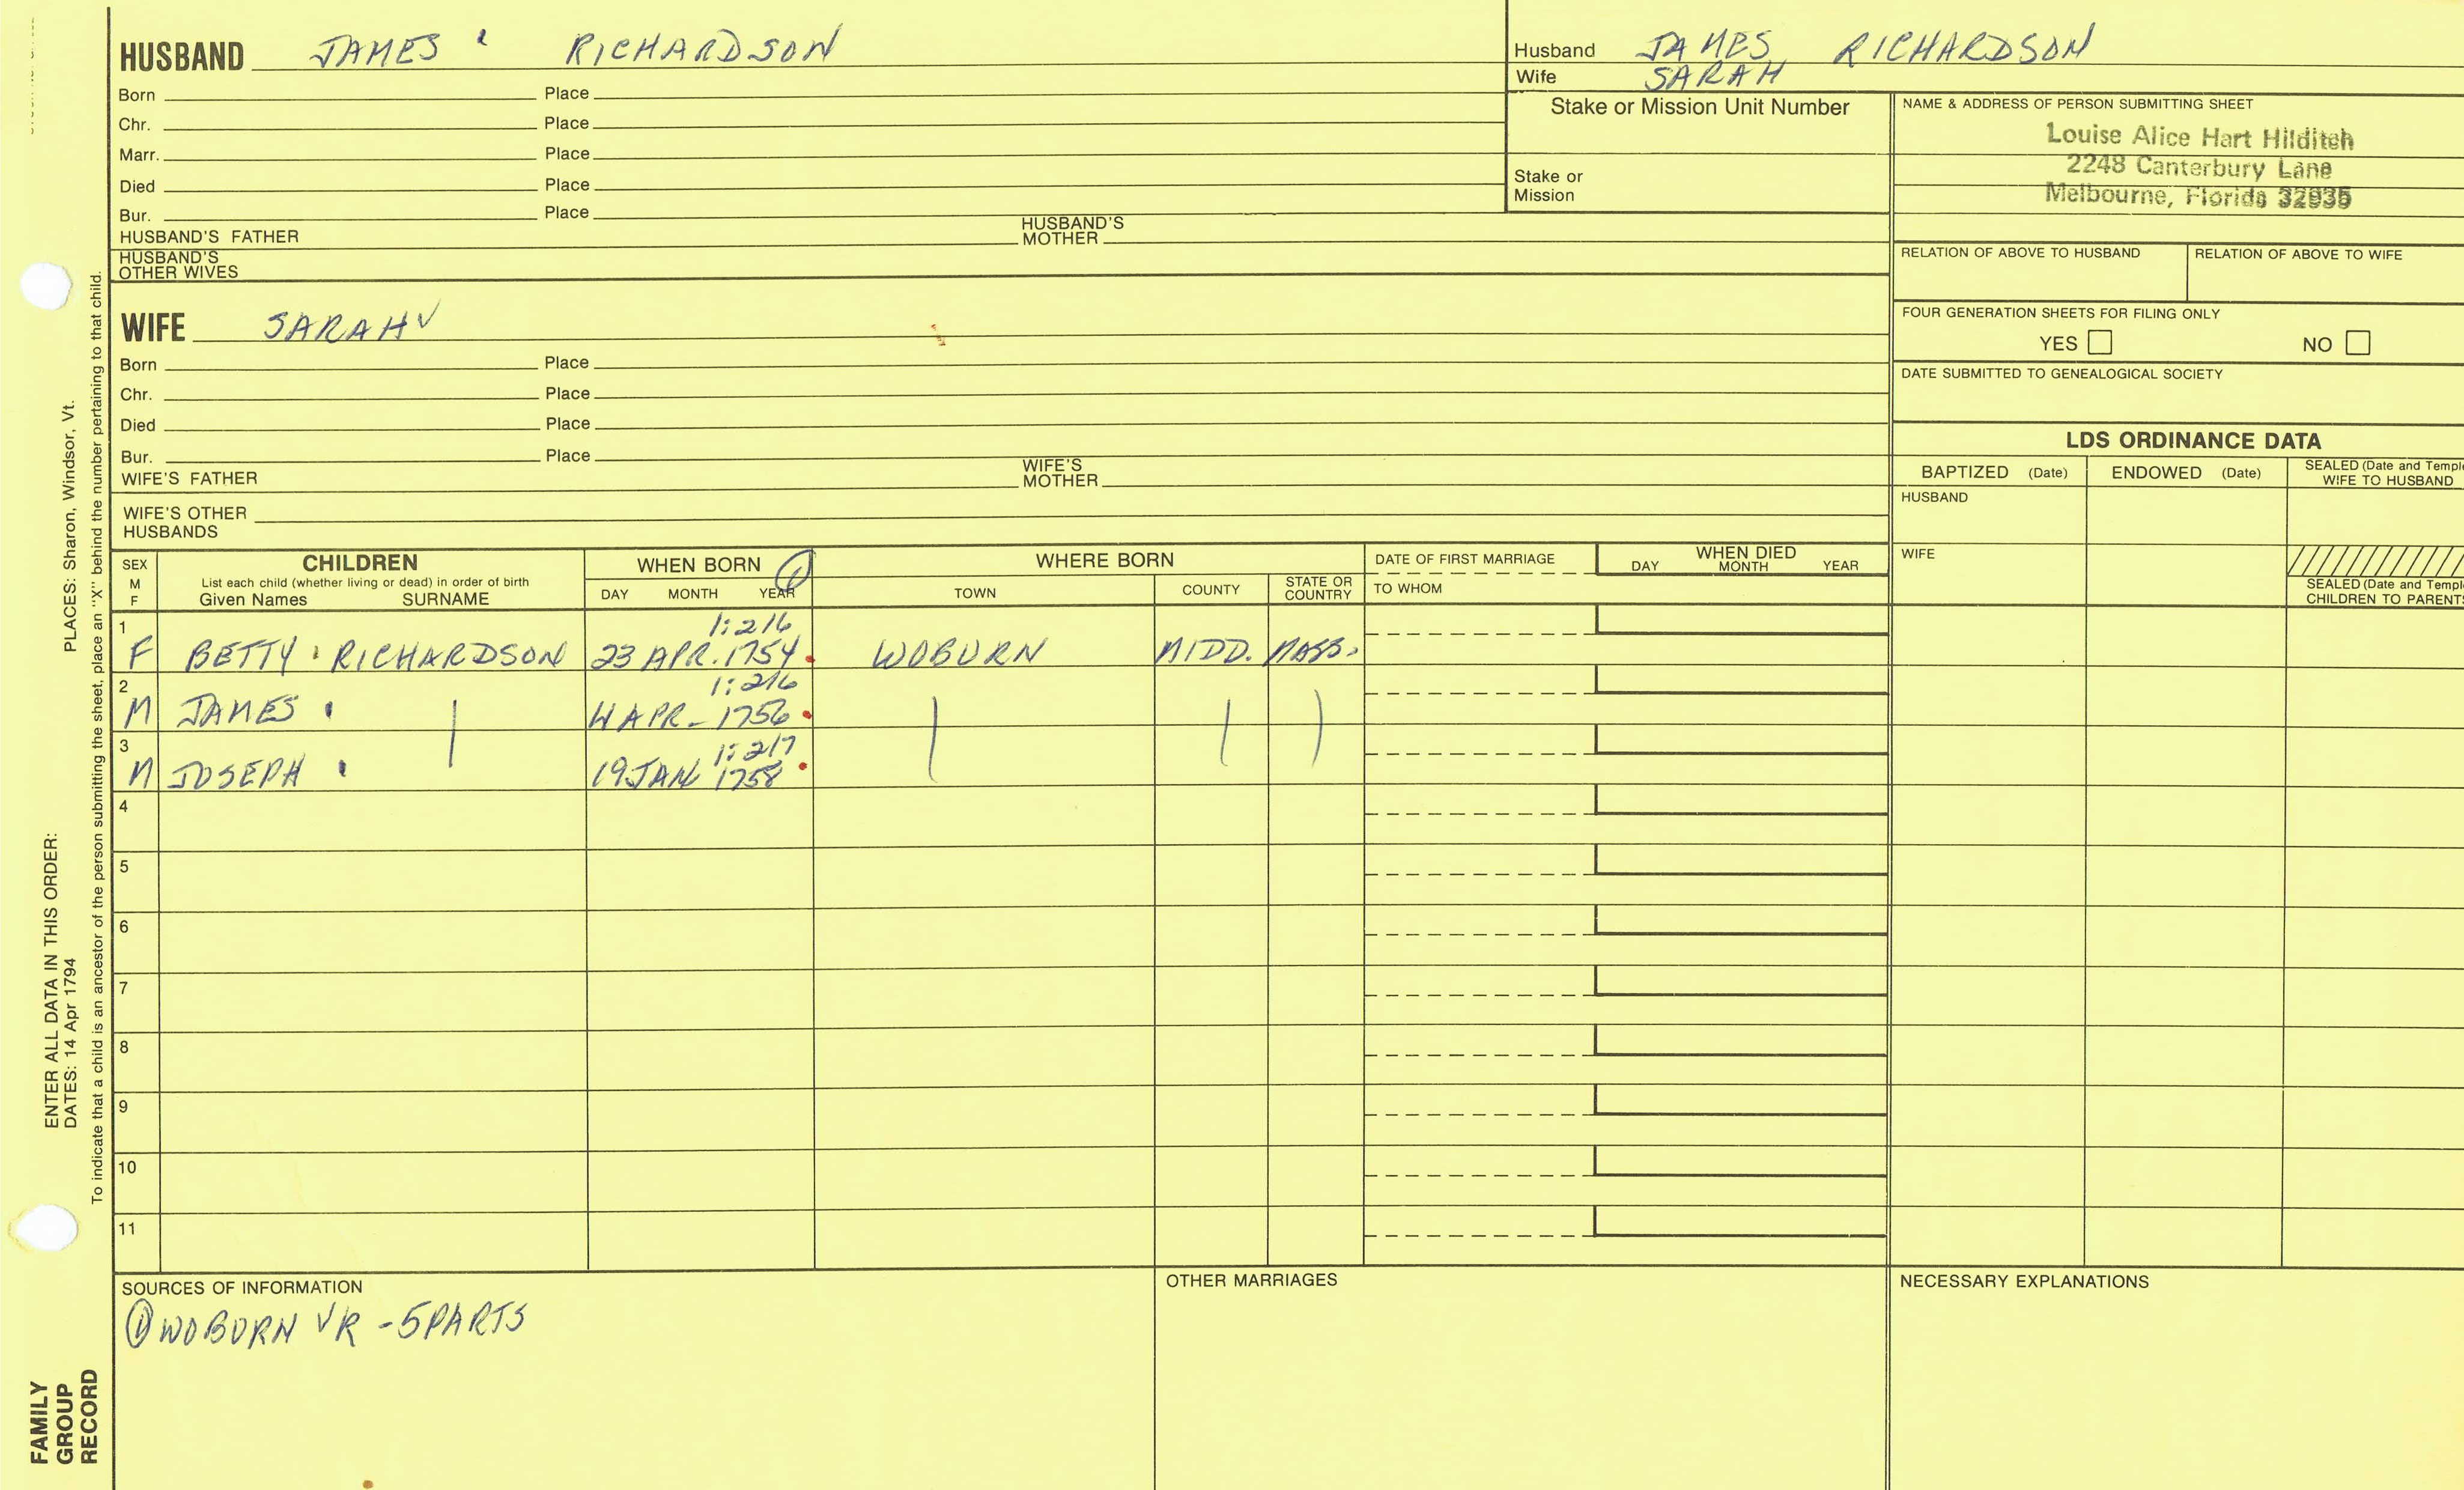 HUSBAND JAMES RICHARDSON
Born Place
Chr. Place
Marr. Place
Died Place
Bur. Place
HUSBAND'S FATHER HUSBAND'S MOTHER
HUSBAND'S OTHER WIVES
Husband JAMES RICHARDSON
Wife SARAH
Stake or Mission Unit Number
Stake or Mission
NAME & ADDRESS OF PERSON SUBMITTING SHEET
Louise Alice Hart Hilditch
2248 Canterbury Lane
Melbourne, Florida 32935
RELATION OF ABOVE TO HUSBAND RELATION OF ABOVE TO WIFE
FOUR GENERATION SHEETS FOR FILING ONLY
YES NO
DATE SUBMITTED TO GENEALOGICAL SOCIETY
WIFE SARAH
Born Place
Chr. Place
Died Place
Bur. Place
WIFE'S FATHER WIFE'S MOTHER
WIFE'S OTHER HUSBANDS
LDS ORDINANCE DATA
BAPTIZED (Date) ENDOWED (Date) SEALED (Date and Temple
WIFE TO HUSBAND
HUSBAND
WIFE
SEALED (Date and Temple
CHILDREN TO PARENTS
SEX M F
CHILDREN
List each child (whether living or dead) in order of birth
Given Names SURNAME
WHEN BORN ①
DAY MONTH YEAR
WHERE BORN
TOWN COUNTY STATE OR COUNTRY
DATE OF FIRST MARRIAGE
TO WHOM
WHEN DIED
DAY MONTH YEAR
1 1:216
F BETTY RICHARDSON 23 APR. 1754 WOBURN MIDD. MASS.
2 1:216
M JAMES 4 APR - 1756
3 1:217
M JOSEPH 19 JAN 1758
4
5
6
7
8
9
10
11
SOURCES OF INFORMATION
① WOBURN VR - 5 PARTS
OTHER MARRIAGES
NECESSARY EXPLANATIONS
FAMILY GROUP RECORD
ENTER ALL DATA IN THIS ORDER:
DATES: 14 Apr 1794 PLACES: Sharon, Windsor, Vt.
To indicate that a child is an ancestor of the person submitting the sheet, place an "X" behind the number pertaining to that child.